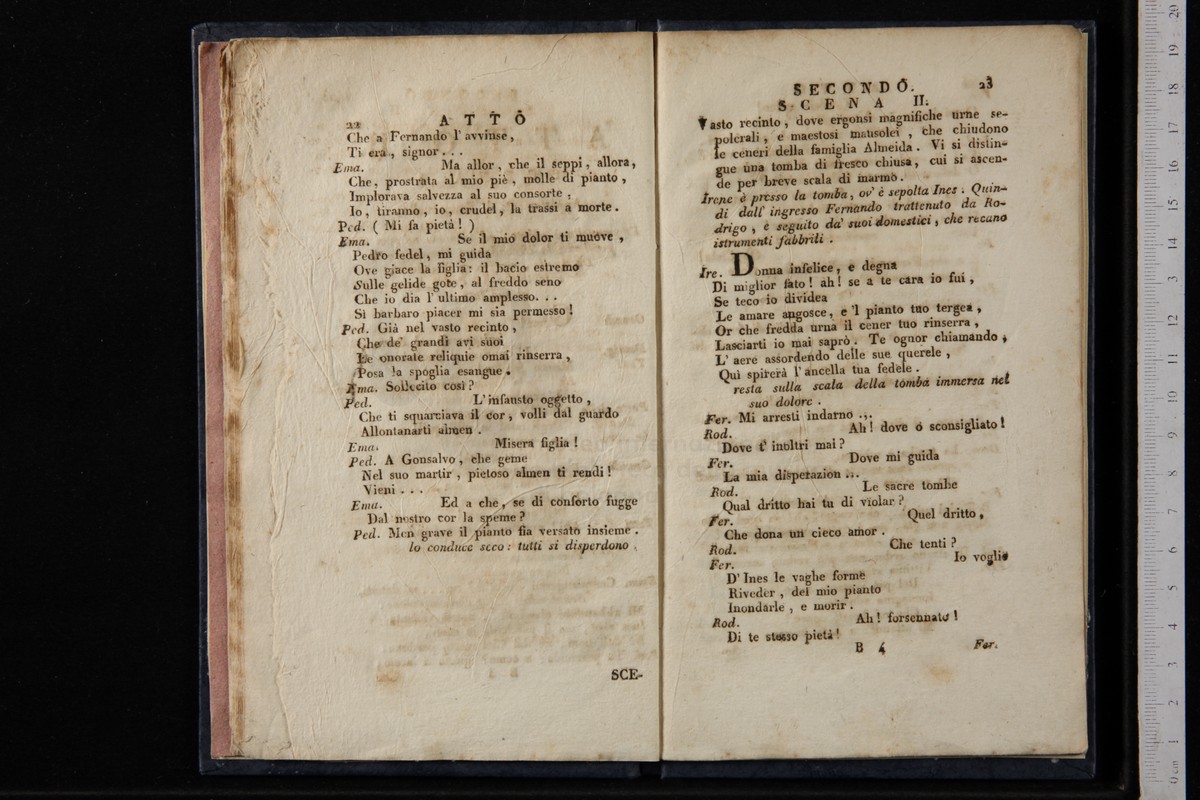 22 ATTO
Che a Fernando l' avvinse,
Ti era, signor . . .
Ema. Ma allor, che il seppi, allora,
Che, prostrata al mio piè, molle di pianto,
Implorava salvezza al suo consorte,
Io, tiranno, io, crudel, la trassi a morte.
Ped. ( Mi fa pietà! )
Ema. Se il mio dolor ti muove,
Pedro fedel, mi guida
Ove giace la figlia: il bacio estremo
Sulle gelide gote, al freddo seno
Che io dia l' ultimo amplesso. . .
Si barbaro piacer mi sia permesso!
Ped. Già nel vasto recinto,
Che de' grandi avi suoi
Le onorate reliquie omai rinserra,
Posa la spoglia esangue.
Ema. Sollecito così?
Ped. L' infausto oggetto,
Che ti squarciava il cor, volli dal guardo
Allontanarti almen.
Ema. Misera figlia!
Ped. A Gonsalvo, che geme
Nel suo martir, pietoso almen ti rendi!
Vieni . . .
Ema. Ed a che, se di conforto fugge
Dal nostro cor la speme?
Ped. Men grave il pianto fia versato insieme.
lo conduce seco: tutti si disperdono.
SCE-
SECONDO. 23
SCENA II.
Vasto recinto, dove ergonsi magnifiche urne se-
polcrali, e maestosi mausolei, che chiudono
le ceneri della famiglia Almeida. Vi si distin-
gue una tomba di fresco chiusa, cui si ascen-
de per breve scala di marmo.
Irene è presso la tomba, ov' è sepolta Ines. Quin-
di dall' ingresso Fernando trattenuto da Ro-
drigo, e seguito da' suoi domestici, che recano
istrumenti fabbrili.
Ire. Donna infelice, e degna
Di miglior fato! ah! se a te cara io fui,
Se teco io dividea
Le amare angosce, e 'l pianto tuo tergea,
Or che fredda urna il cener tuo rinserra,
Lasciarti io mai saprò. Te ognor chiamando,
L' aere assordendo delle sue querele,
Quì spirerà l' ancella tua fedele.
resta sulla scala della tomba immersa nel
suo dolore.
Fer. Mi arresti indarno ...
Rod. Ah! dove o sconsigliato!
Dove t' inoltri mai?
Fer. Dove mi guida
La mia disperazion ...
Rod. Le sacre tombe
Qual dritto hai tu di violar?
Fer. Quel dritto,
Che dona un cieco amor.
Rod. Che tenti?
Fer. Io voglio
D' Ines le vaghe forme
Riveder, del mio pianto
Inondarle, e morir.
Rod. Ah! forsennato!
Di te stesso pietà!
B 4 Fer.